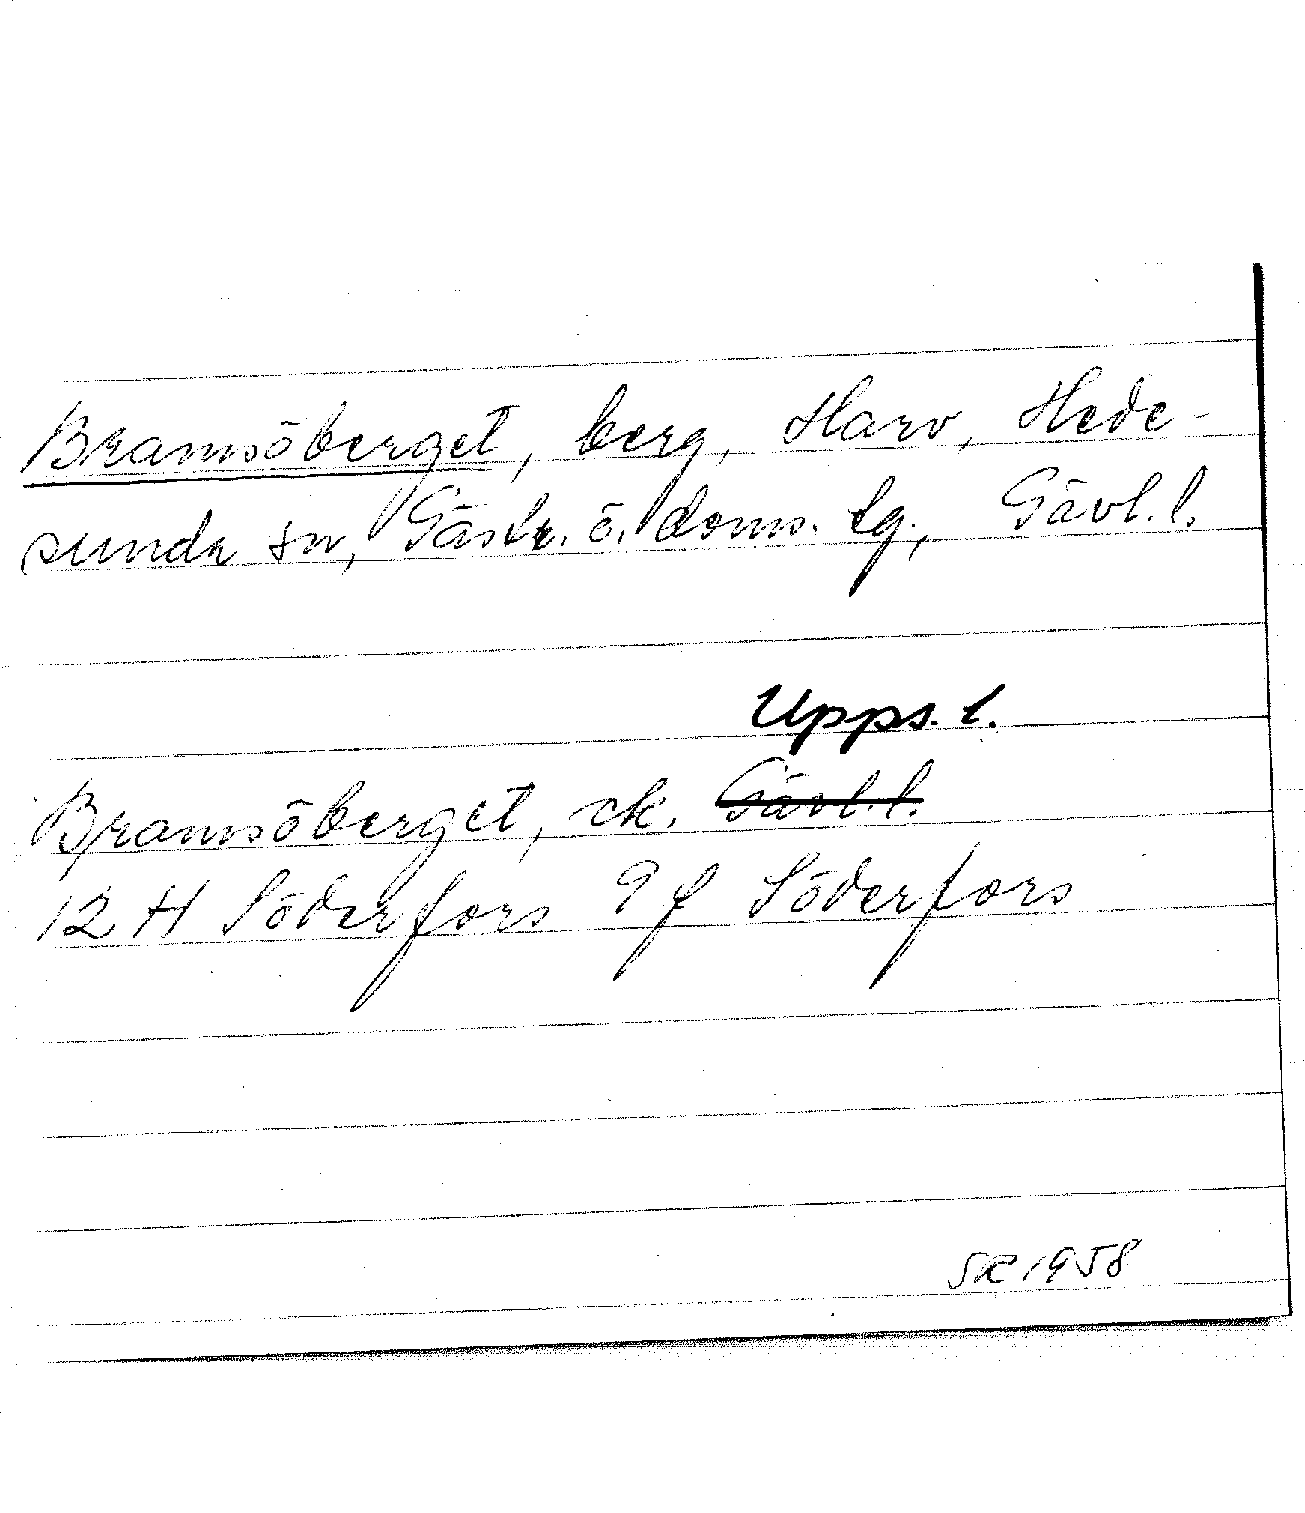 Bramsöberget, berg, Harv, Hede-
sunda sn, Gästr. ö. doms. lg., Gävl. l.
Upps. l.
Bramsöberget, ek. Gävl. l.
12 H Söderfors 9 f Söderfors
SR 1958